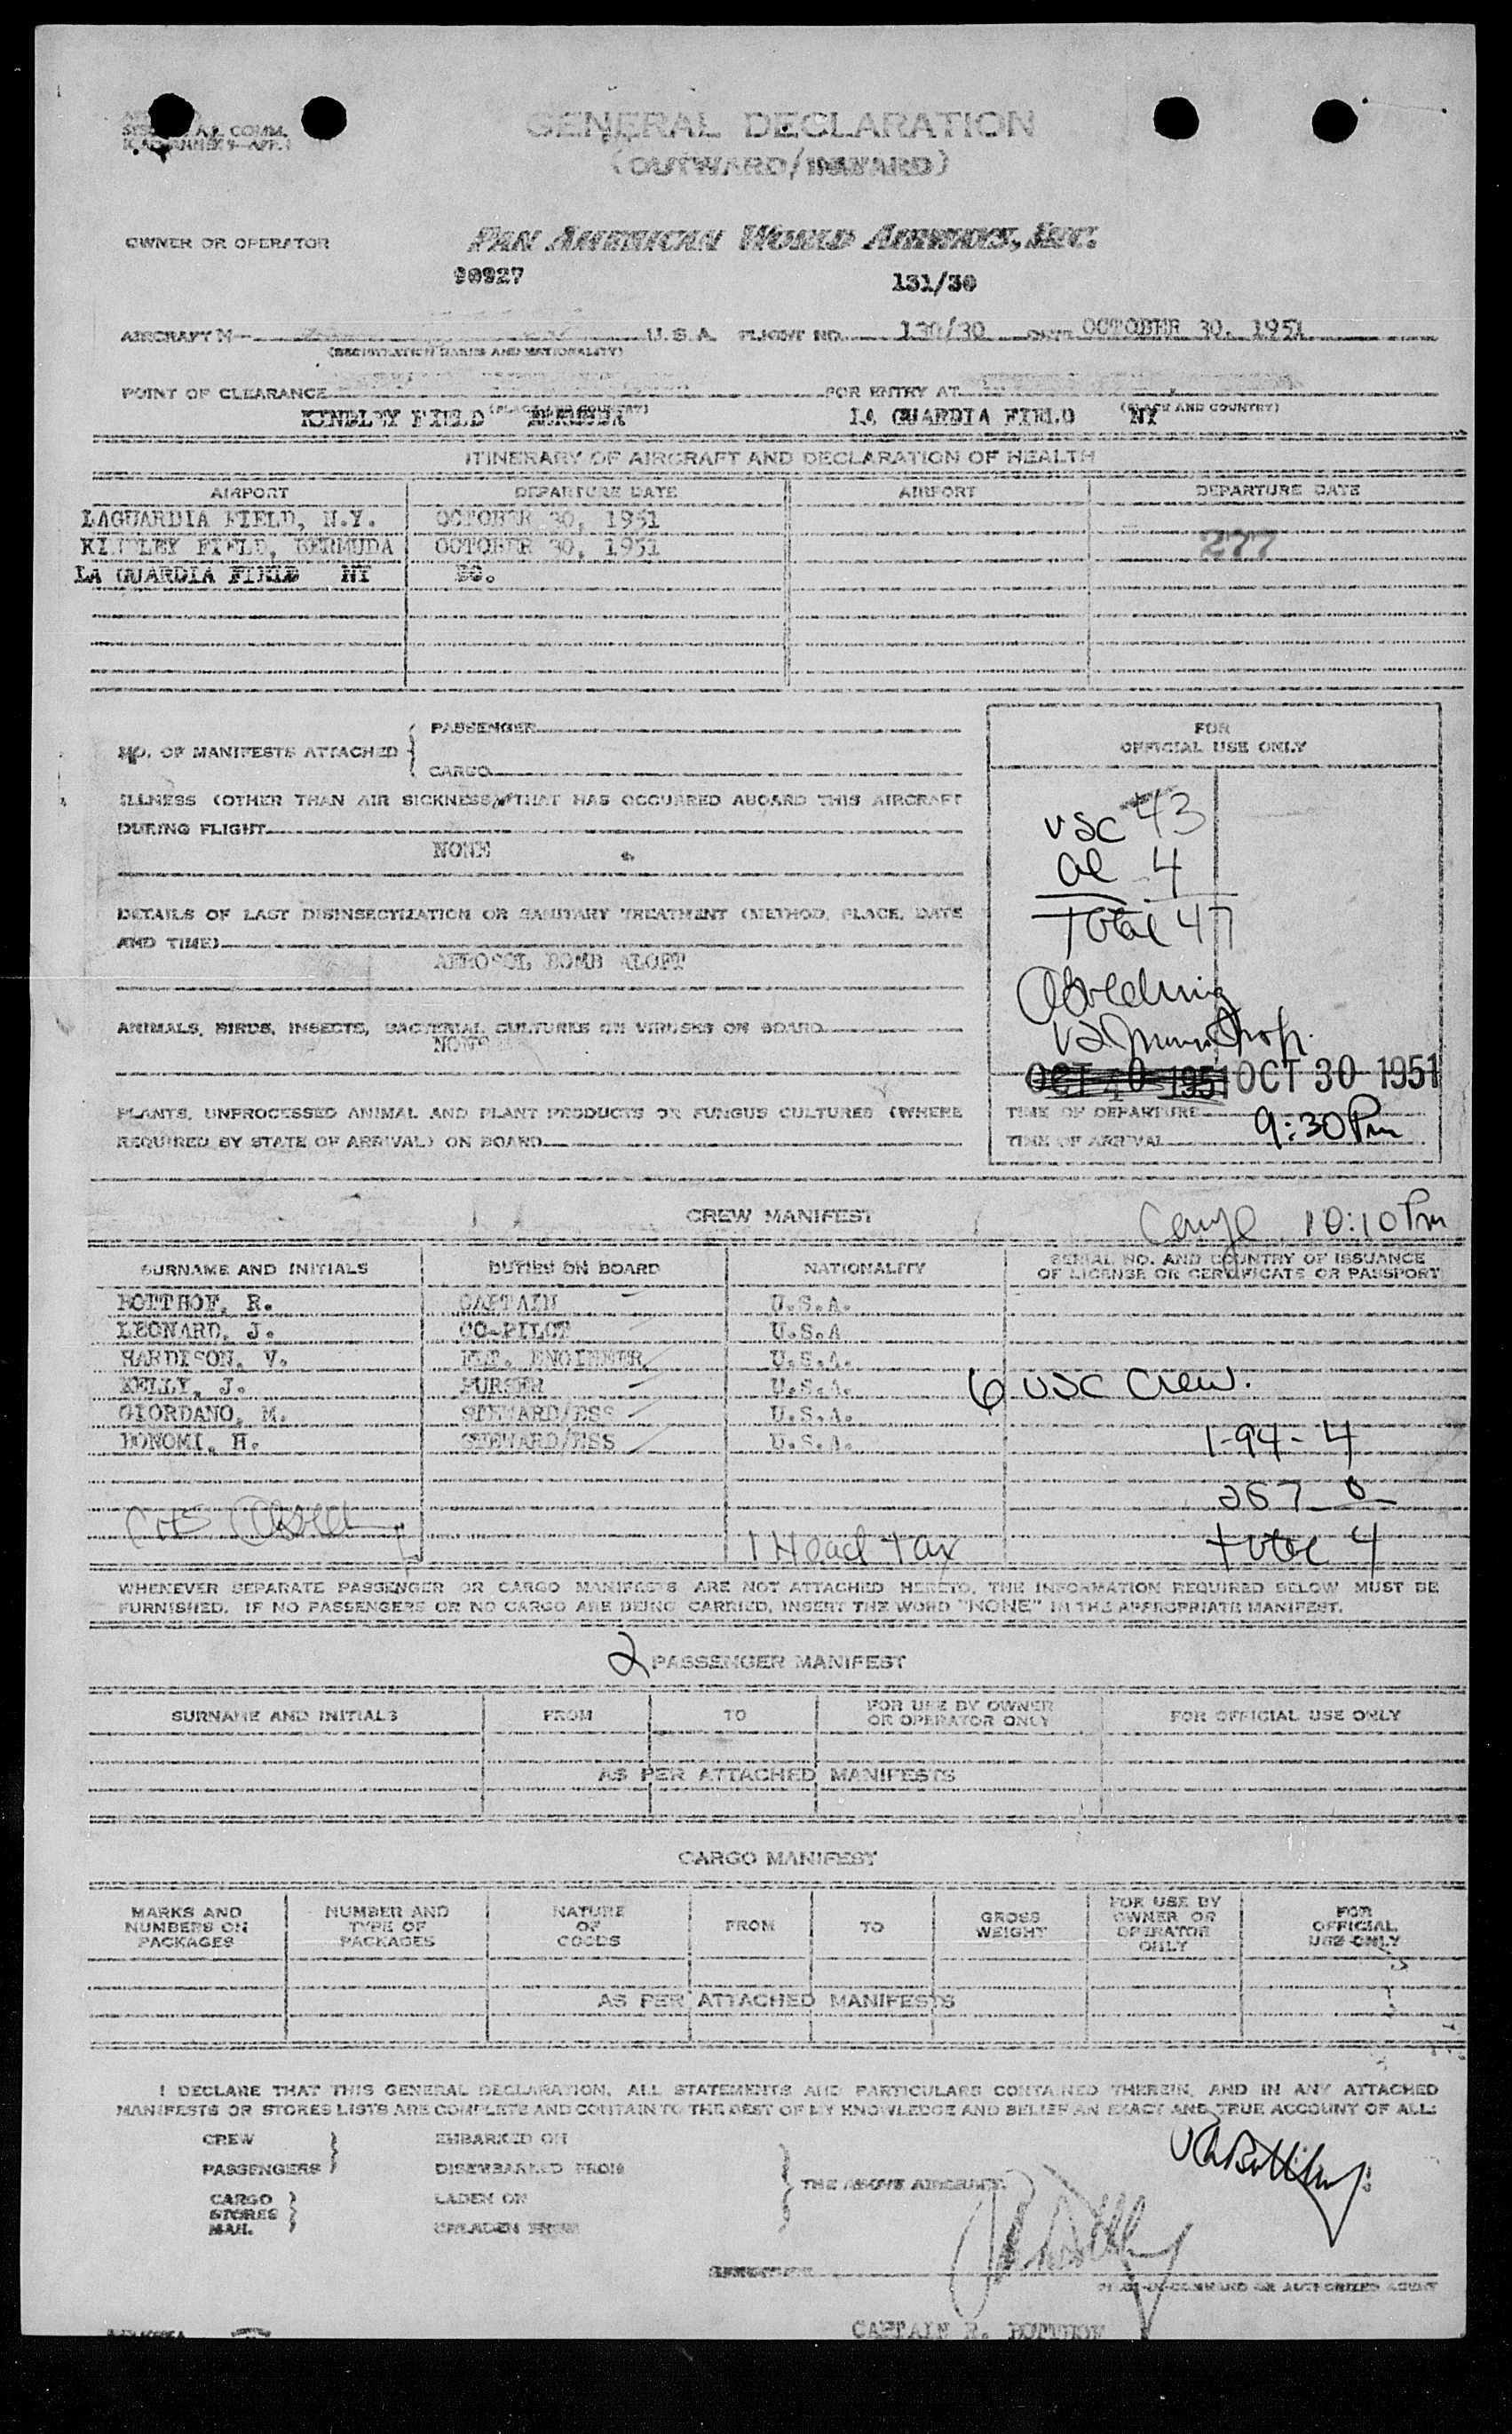 GENERAL DECLARATION
(OUTWARD/INWARD)
OWNER OR OPERATOR PAN AMERICAN WORLD AIRWAYS, INC.
90927 131/30
AIRCRAFT N- U.S.A. FLIGHT NO. 130/30 DATE OCTOBER 30, 1951
(REGISTRATION MARKS AND NATIONALITY)
POINT OF CLEARANCE FOR ENTRY AT
(PLACE AND COUNTRY) (PLACE AND COUNTRY)
KINDLEY FIELD BERMUDA LA GUARDIA FIELD NY
ITINERARY OF AIRCRAFT AND DECLARATION OF HEALTH
AIRPORT DEPARTURE DATE AIRPORT DEPARTURE DATE
LAGUARDIA FIELD, N.Y. OCTOBER 30, 1951
KINDLEY FIELD, BERMUDA OCTOBER 30, 1951 277
LA GUARDIA FIELD NY DO.
NO. OF MANIFESTS ATTACHED { PASSENGER
CARGO
ILLNESS (OTHER THAN AIR SICKNESS) THAT HAS OCCURRED ABOARD THIS AIRCRAFT
DURING FLIGHT
NONE
DETAILS OF LAST DISINSECTIZATION OR SANITARY TREATMENT (METHOD, PLACE, DATE
AND TIME)
AEROSOL BOMB ALOFT
ANIMALS, BIRDS, INSECTS, BACTERIAL CULTURES OR VIRUSES ON BOARD
NONE
PLANTS, UNPROCESSED ANIMAL AND PLANT PRODUCTS OR FUNGUS CULTURES (WHERE
REQUIRED BY STATE OF ARRIVAL) ON BOARD
FOR
OFFICIAL USE ONLY
USC 43
al 4
Total 47
OCT 30 1951
TIME OF DEPARTURE
TIME OF ARRIVAL 9:30 Pm
10:10 Pm
CREW MANIFEST
SURNAME AND INITIALS DUTIES ON BOARD NATIONALITY SERIAL NO. AND COUNTRY OF ISSUANCE
OF LICENSE OR CERTIFICATE OR PASSPORT
BOTTHOF, R. CAPTAIN U.S.A.
LEONARD, J. CO-PILOT U.S.A
HARDISON, V. FLT. ENGINEER U.S.A.
KELLY, J. PURSER U.S.A. 6 USC Crew.
GIORDANO, M. STEWARD/ESS U.S.A.
BONOMI, H. STEWARD/ESS U.S.A. 1-94-4
257 0
1 Head tax total 4
WHENEVER SEPARATE PASSENGER OR CARGO MANIFESTS ARE NOT ATTACHED HERETO, THE INFORMATION REQUIRED BELOW MUST BE
FURNISHED. IF NO PASSENGERS OR NO CARGO ARE BEING CARRIED, INSERT THE WORD "NONE" IN THE APPROPRIATE MANIFEST.
2 PASSENGER MANIFEST
SURNAME AND INITIALS FROM TO FOR USE BY OWNER
OR OPERATOR ONLY FOR OFFICIAL USE ONLY
AS PER ATTACHED MANIFESTS
CARGO MANIFEST
MARKS AND
NUMBERS ON
PACKAGES
NUMBER AND
TYPE OF
PACKAGES
NATURE
OF
GOODS
FROM
TO
GROSS
WEIGHT
FOR USE BY
OWNER OR
OPERATOR
ONLY
FOR
OFFICIAL
USE ONLY
AS PER ATTACHED MANIFESTS
I DECLARE THAT THIS GENERAL DECLARATION, ALL STATEMENTS AND PARTICULARS CONTAINED THEREIN, AND IN ANY ATTACHED
MANIFESTS OR STORES LISTS ARE COMPLETE AND CONTAIN TO THE BEST OF MY KNOWLEDGE AND BELIEF AN EXACT AND TRUE ACCOUNT OF ALL:
CREW EMBARKED ON
PASSENGERS DISEMBARKED FROM
THE ABOVE AIRCRAFT.
CARGO LADEN ON
STORES
MAIL UNLADEN FROM
SIGNATURE
PILOT-IN-COMMAND OR AUTHORIZED AGENT
CAPTAIN R. BOTTHOF